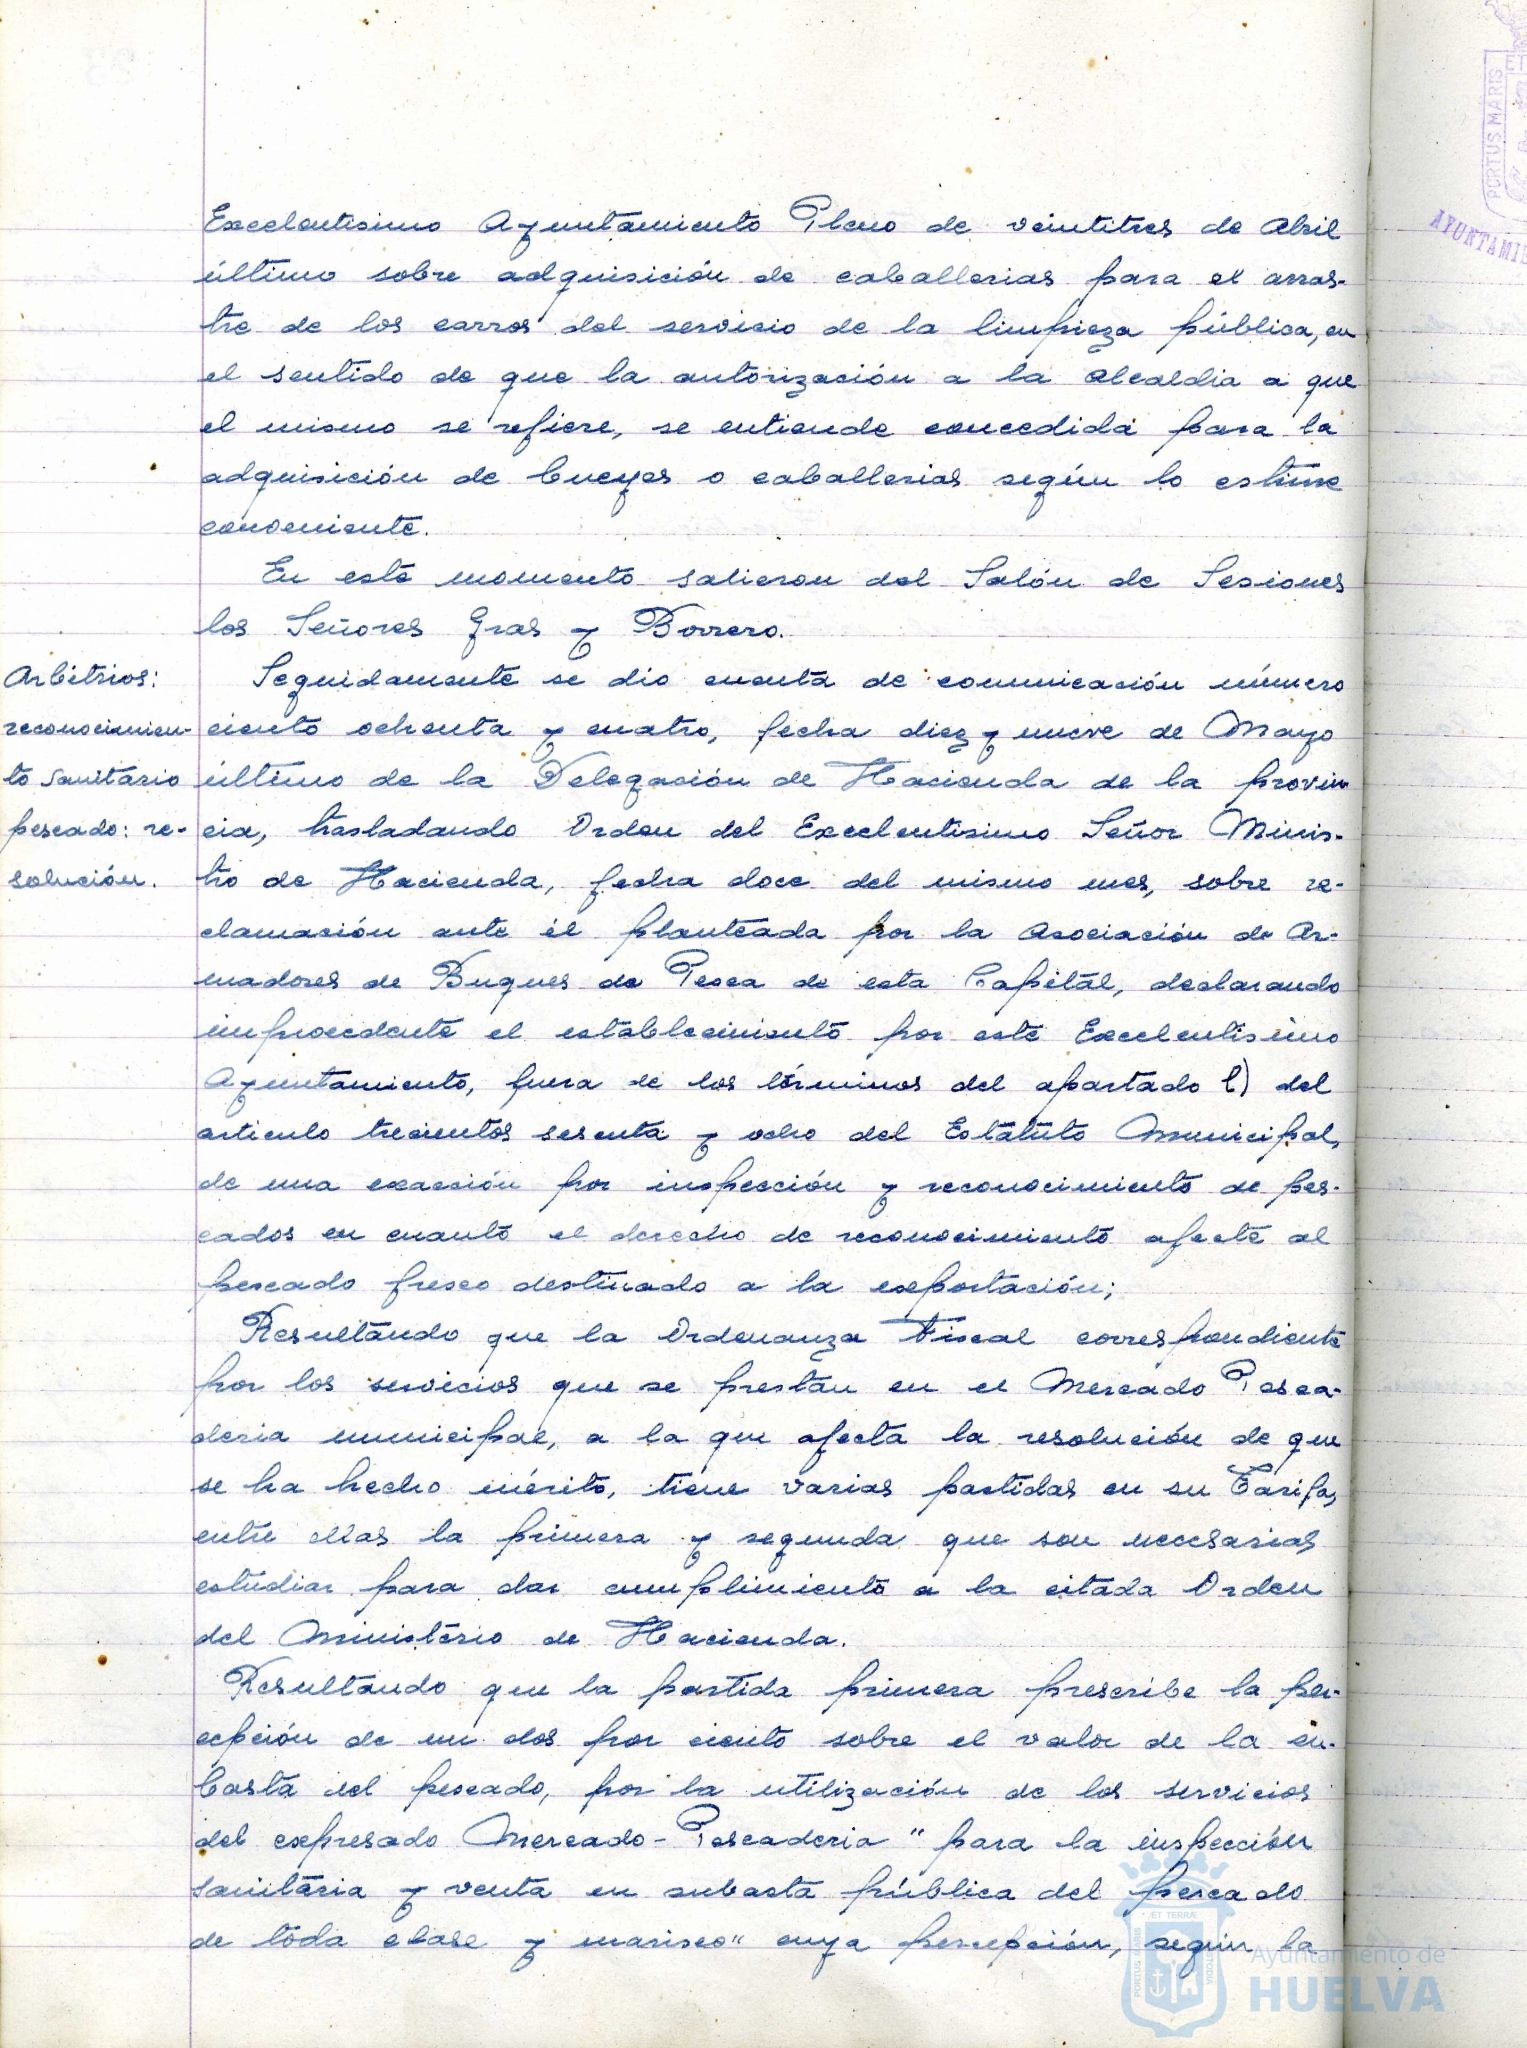 Excelentisimo Ayuntamiento Pleno de veintitres de Abril
último sobre adquisición de caballerias para el arras-
tre de los carros del servicio de la limpieza pública, en
el sentido de que la autorización a la Alcaldia a que
el mismo se refiere, se entiende concedida para la
adquisición de bueyes o caballerias según lo estime
conveniente.
En este momento salieron del Salón de Sesiones
los Señores Gras y Borrero.
Arbitrios:
reconocimien-
to sanitario
pescado: re-
solución.
Seguidamente se dio cuenta de comunicación número
ciento ochenta y cuatro, fecha diez y nueve de Mayo
último de la Delegación de Hacienda de la provin
cia, trasladando Orden del Excelentisimo Señor Minis-
tro de Hacienda, fecha doce del mismo mes, sobre re-
clamación ante él planteada por la Asociación de Ar-
madores de Buques de Pesca de esta Capital, declarando
improcedente el establecimiento por este Excelentisimo
Ayuntamiento, fuera de los términos del apartado l) del
articulo trecientos sesenta y ocho del Estatuto Municipal,
de una exacción por inspección y reconocimiento de pes-
cados en cuanto el derecho de reconocimiento afecte al
pescado fresco destinado a la exportación;
Resultando que la Ordenanza Fiscal correspondiente
por los servicios que se prestan en el Mercado Pesca-
deria municipal, a la que afecta la resolución de que
se ha hecho mérito, tiene varias partidas en su Tarifa,
entre ellas la primera y segunda que son necesarias
estudiar para dar cumplimiento a la citada Orden
del Ministerio de Hacienda.
Resultando que la partida primera prescribe la per-
cepción de un dos por ciento sobre el valor de la su-
basta del pescado, por la utilización de los servicios
del expresado Mercado-Pescaderia "para la inspección
sanitaria y venta en subasta pública del pescado
de toda clase y marisco" cuya percepción, según la
PORTUS MARIS
ET
AYUNTAMIE
PORTUS MARIS
ET TERRÆ
CUSTODIA
Ayuntamiento de
HUELVA